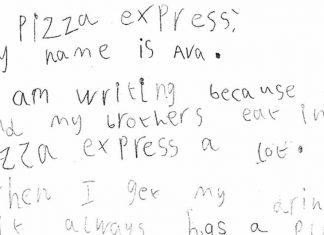 pizza express,
y name is Ava.
am writing because
d my brothers eat in
zza express a lot.
hen I get my drin
it always has a pl